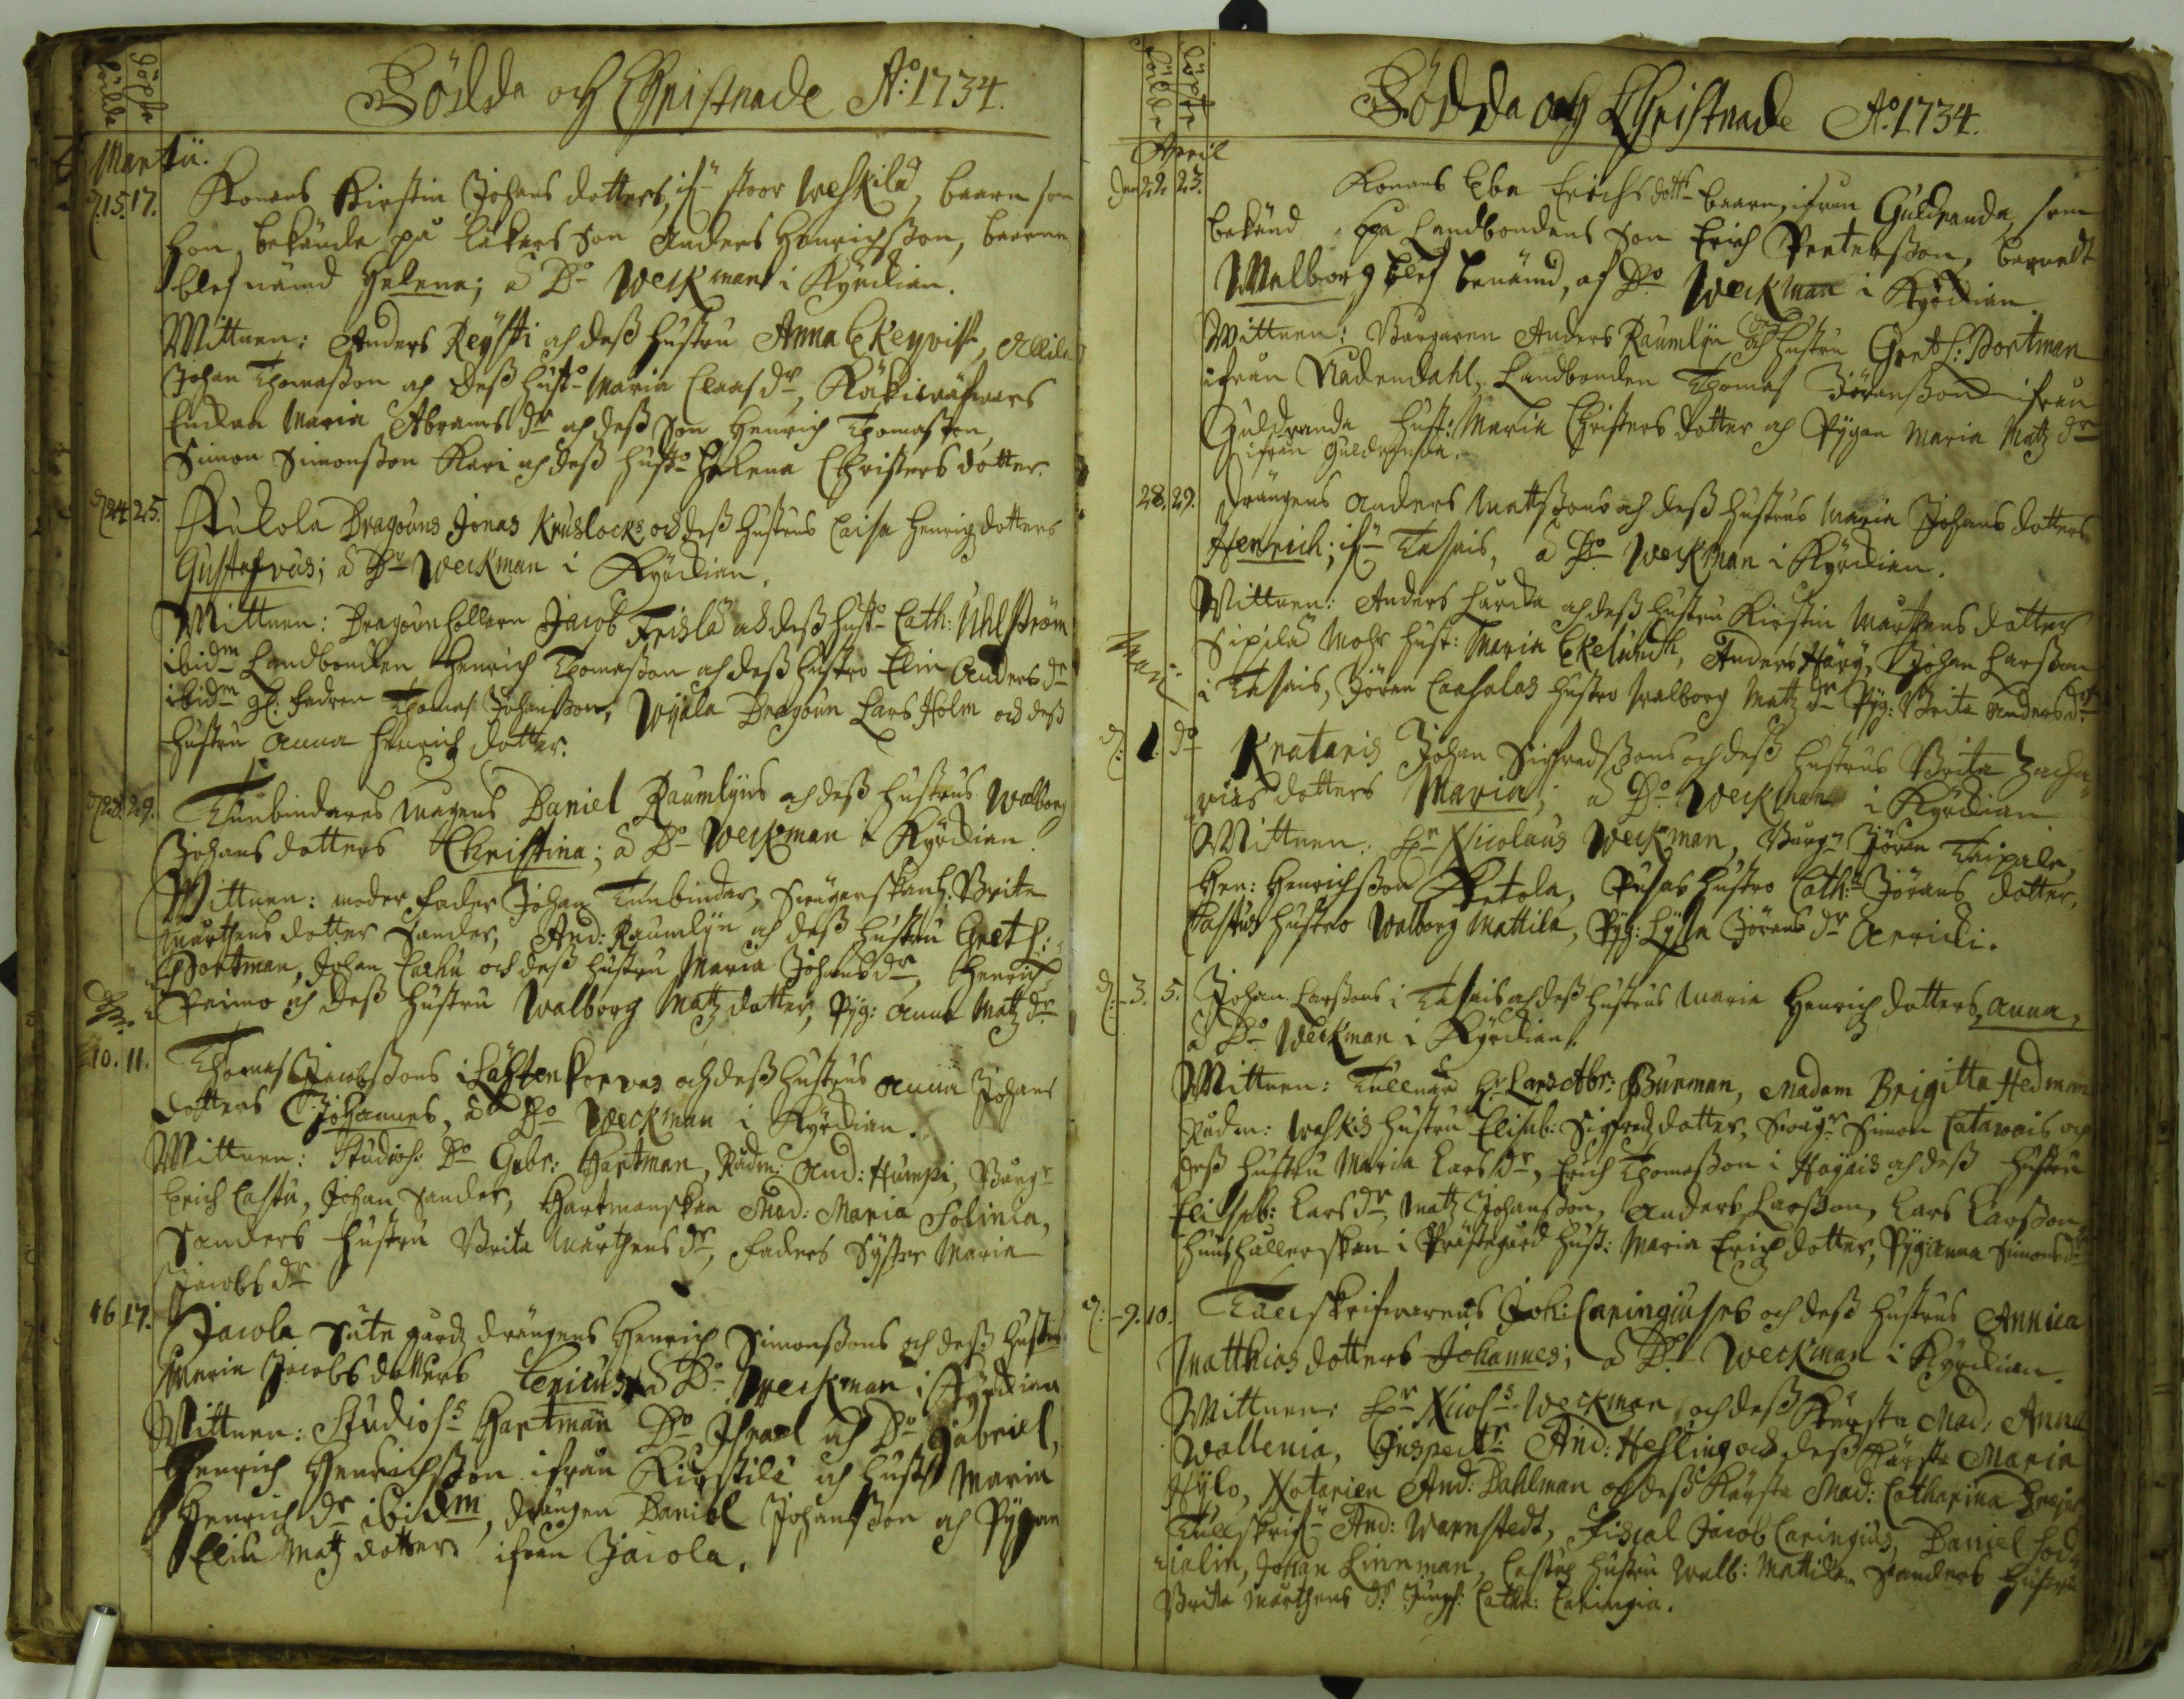 Födda
Döpta
Födda och Christnade A:o 1734.
Martii.
d. 15. 17. Konans Kirstin Johans dotters, ifn stoor Weskilä, baarn som
hon bekände på Läkars Son Anders Henrichsson, baarnet
blef nämd Helena; a Do Weckman i Kyrckian.
Wittnen: Anders Reijsti och dess hustru Anna Ekeqvist,
Johan Thomasson och dess hust:o Maria Claas dr,
Enckan Maria Abrams dr och dess Son Henrich Thomasson,
Simon Simonsson Kari och dess hust:o Helena Christers dotter.
d. 24. 25. Kukola Dragouns Jonas Kruslocks och dess hustrus Caisa Henrichs dotters
Gustafvus; a Do Weckman i Kyrckian.
Wittnen: Dragoun hollaren Jacob Frislä och dess hust:o Cath: Uhlström
ibidm Landbonden Henrich Thomasson och dess hustro Elin Anders dr
ibidm gl. fadren Thomas Johansson, Wijala Dragoun Lars Holm och dess
hustru Anna Henrich dotter.
d. 28. 29. Tunbindares magens Daniel Raumlijns och dess hustrus Walborg
Johans dotters Christina; a Do Weckman i Kyrckian.
Wittnen: moder fader Johan Tunbindar, Brita
Mårthens dotter Sander, And: Raumlijn och dess hustru Greth:
Portman, Johan Carhu och dess hustru Maria Johans dr, Henrich
Primo och dess hustru Walborg Matz dotter, Pyg: Anna Matz dr
10. 11. Thomas Jacobssons i Lähtenkorvas och dess hustrus Anna Johans
dotters Johannes, a Do Weckman i Kyrckian.
Wittnen: Studios: Do Gabr: Hartman, Rådm: And: Humpi, Burgr
Erich Castu, Johan Sander, Hartmanskan Mad: Maria Solinia,
Sanders hustru Brita Mårthens dr, faders Syster Maria
Jacobs dr
16 17. Jacola Sätegårdz drängens Henrich Simonssons och dess hustrus
Maria Jacobs dotters Ericus; a Do Weckman i Kyrckian
Wittnen: Studioss Hartman Do Israel och Do Gabriel,
Henrich Henrichsson ifrån Kirstilä och hust Maria
Henrich dr ibidm, drängen Daniel Johansson och Pygan
Elin Matz dotter ifrån Jacola.
Födda
Döpta
Födda och Christnade A:o 1734.
April
den 22 23. Konans Eba Erichs dottr baarn, ifrån Guldranda, som
bekänd på Landbondens Son Erich Pettersson, barnet
Walborg blef benämd, af Do Weckman i Kyrckian.
Wittnen: Borgaren Anders Raumlijn och hustru Greth: Portman
ifrån Nådendahl, Landbonden Thomas Jöransson ifrån
Guldranda hust: Maria Christers dotter och Pygan Maria Matz dr
ifrån Guldranda.
28. 29. Drängens Anders Mattssons och dess hustrus Maria Johans dotters
Henrich; ifn Tasais, a Do Weckman i Kyrckian.
Wittnen: Anders Laurila och dess hustru Kirstin Mårthens dotter
Sipilä Mohr hust: Maria Ekelundh, Anders Härg, Johan Larsson
i Tasais, Jöran Casalas hustro Walborg Matz dr Pyg: Brita Anders dr
Maij
d: 1. do Krataris Johan Sigfredssons och dess hustrus Brita Zacha
rias dotters Maria; a Do Weckman i Kyrckian
Wittnen: Hr Nicolaus Weckman, Burgr Jöran Taipale,
Hen: Henrichsson Ketola, Pusas hustro Cath: Jörans dotter,
Castus hustro Walborg Mattila, Pyg: Lysa Jörans dr
d: 3. 5. Johan Larssons i Tasais och dess hustrus Maria Henrich dotters, Anna,
a Do Weckman i Kyrckian.
Wittnen: Tullnär Hr Lars Abr: Burman, Madam Brigitta Hedman
Rådm: Weskis hustru Elisab: Sigfredz dotter, Simon Catawais och
dess hustru Maria Lars dr, Erich Thomasson i Hayais och dess hustru
Elisab: Lars dr, Matz Johansson, Anders Larsson, Lars Larsson
huushållerskan i Prästegård hust: Maria Erich dotter, Pyg: Anna Simons dr
d: 9. 10. Tullskrifwarens Joh: Caringiuses och dess hustrus Annica
Matthias dotters Johannes; a Do Weckman i Kyrckian.
Wittnen: Hr Nicols Weckman och dess Kärsta Mad: Anna
Wallenia, Inspectr: And: Hesling och dess Kärsta Maria
Hylo, Notarien And: Dahlman och dess Kärsta Mad: Catharina
Tullskrifr And: Warnstedt, Fiscal Jacob Caringius, Daniel
Johan Linneman, Castus hustru Walb: Mattila, Sanders hustru
Brita Mårthens dr Jungf: Catha: Caringia.